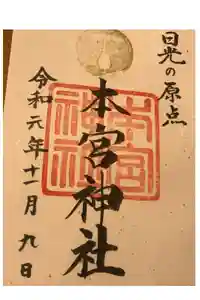 日光の原点
本宮神社
令和元年十一月九日
本宮神社